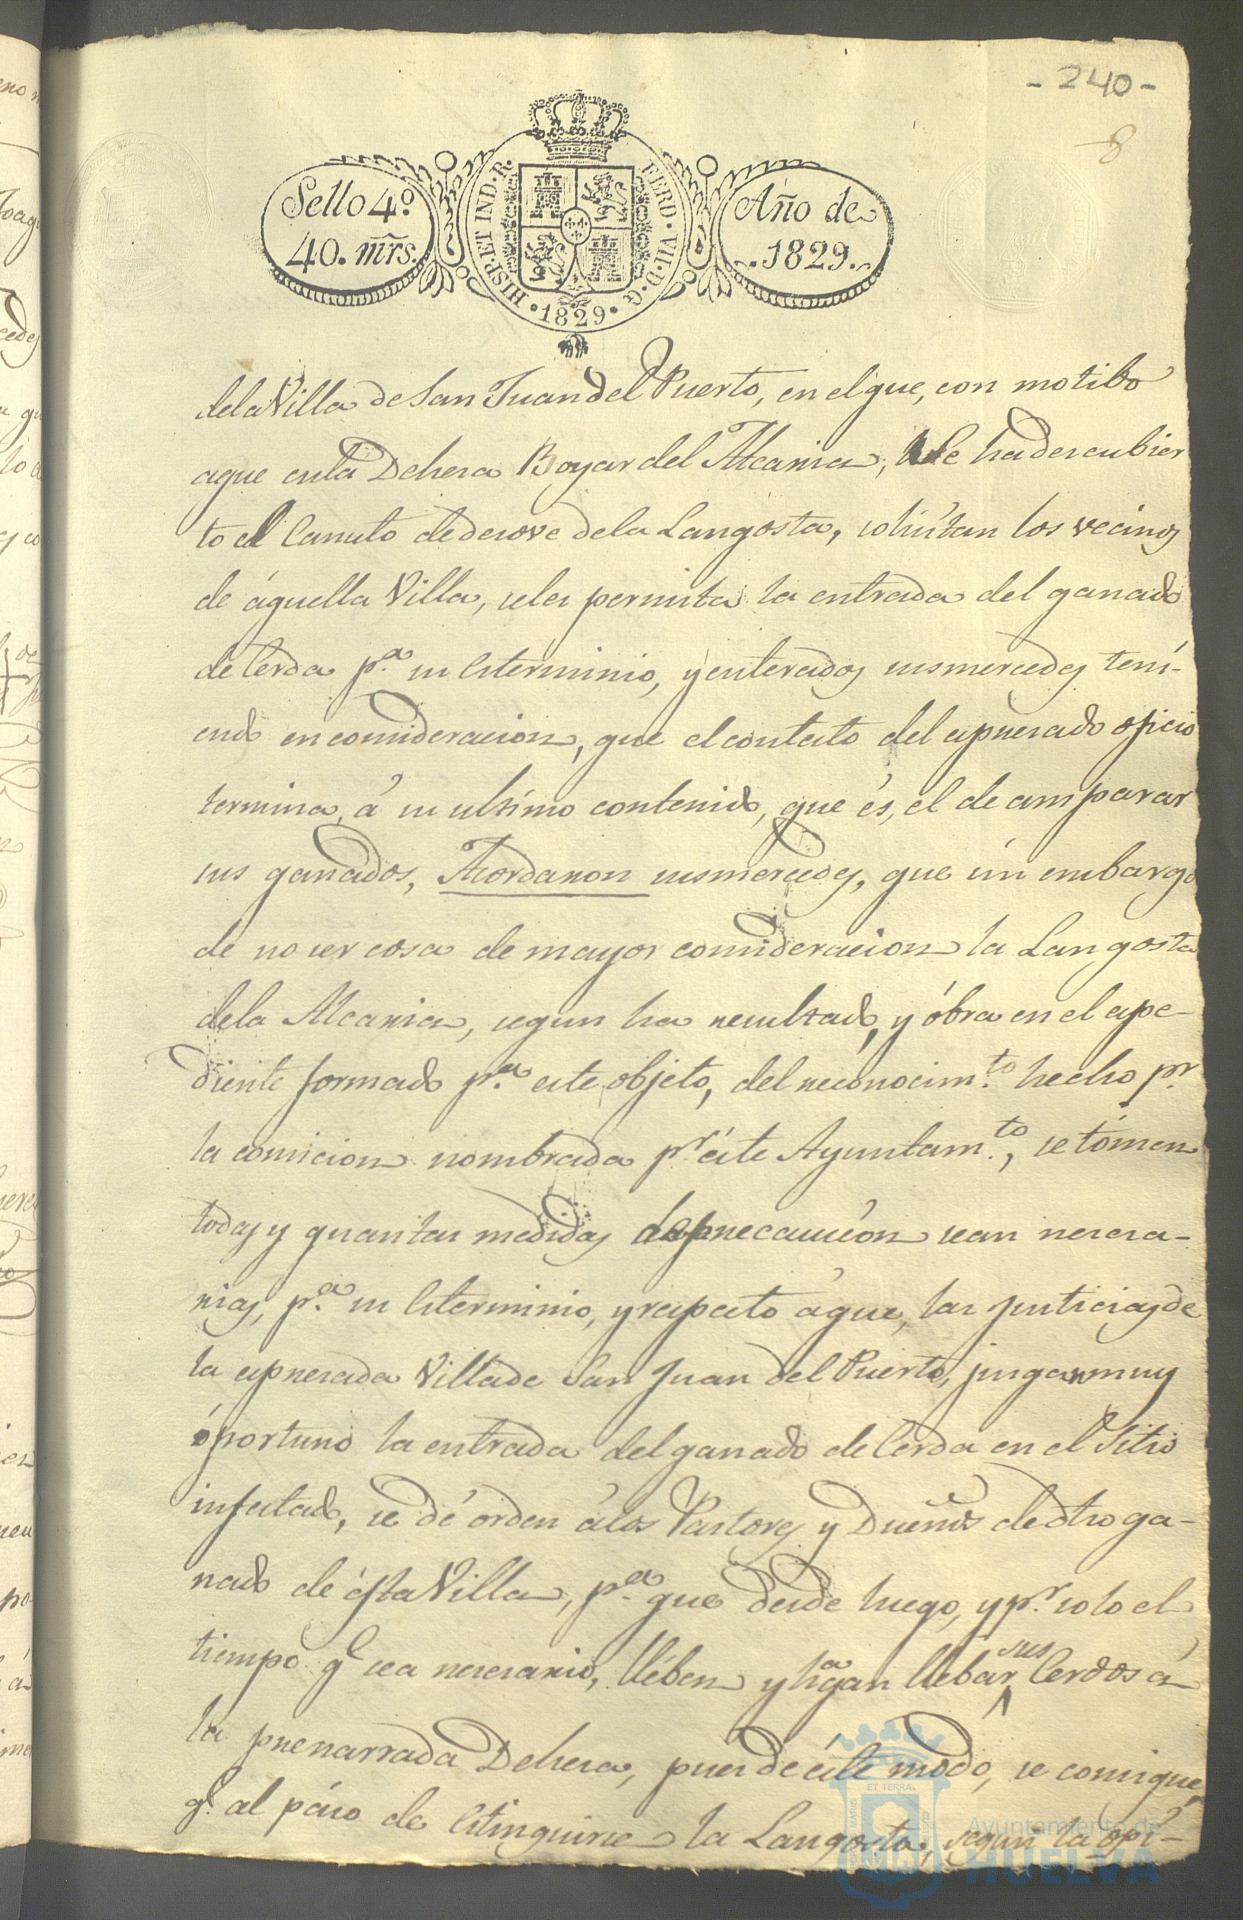 - 240 -
8
Sello 4º
40. mrs.
HISP. ET IND. R.
FERD. VII. D. G.
1829
Año de
1829.
dela Villa de San Juan del Puerto, en el que, con motibo
aque enla Dehesa Boyar del Alcania, se ha descubier
to el Canuto dedesove dela Langosta, solisitan los vecinos
de áquella Villa, seles permita la entrada del ganado
de Cerda pª su Esterminio, y enterados susmercedes tení-
endo en consideracion, que el contesto del espresado oficio
termina, á su ultimo contenido, que és, el de amparar
sus ganados, Acordaron susmercedes, que sin embargo
de no ser cosa de mayor consideracion la Langosta
dela Alcania, segun ha resultado, y óbra en el espe-
diente formado pª este objeto, del reconocimto hecho pr
la comicion nombrada pr éste Ayuntamto, se tómen
todas y quantas medidas de precaucion sean nesesa-
rias, pª su Esterminio, y respecto áque, las justicias de
la espresada Villa de San Juan del Puerto, jusgan muy
óportuno la entrada del ganado de Cerda en el Sitio
infestado, se dé órden álos Pastores y Dueños de dho ga-
nado de ésta Villa, pª que desde luego, y pr solo el
tiempo q sea nesesario, llében y hagan llebar sus Cerdos á
la prenarrada Dehesa, pues de éste modo, se consigue,
q al páso de Estinguirse la Langosta, segun la opi-
ET TERRAE
Ayuntamiento de
HUELVA